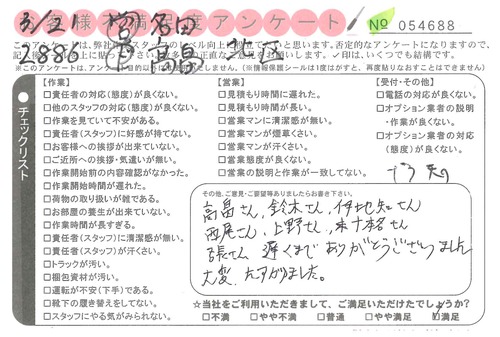 お客様不満足度アンケート
3/21 営 名田
№ 054688
2886 高畠 地区
【作業】
□責任者の対応(態度)が良くない。
□他のスタッフの対応(態度)が良くない。
□作業を見ていて不安がある。
□責任者(スタッフ)に好感が持てない。
□お客様への挨拶が出来ていない。
□ご近所への挨拶・気遣いが無い。
□作業開始前の内容確認がなかった。
□作業開始時間が遅れた。
□荷物の取り扱いが雑である。
□お部屋の養生が出来ていない。
□作業時間が長すぎる。
□責任者(スタッフ)に清潔感が無い。
□責任者(スタッフ)が汗くさい。
□トラックが汚い。
□梱包資材が汚い。
□運転が不安(下手)である。
□靴下の履き替えをしてない。
□スタッフにやる気がみられない。
【営業】
□見積もり時間に遅れた。
□見積もり時間が長い。
□営業マンに清潔感が無い。
□営業マンが煙草くさい。
□営業マンが汗くさい。
□営業態度が良くない。
□営業の説明と作業が一致してない。
【受付・その他】
□電話の対応が良くない。
□オプション業者の説明
・作業が良くない。
□オプション業者の対応
(態度)が良くない。
●チェックリスト
その他、ご意見・ご要望等ありましたらお書き下さい。
高畠さん、鈴木さん、伊地知さん
西尾さん、上野さん、
遅くまでありがとうございました
大変、たすかりました。
☆当社をご利用いただきまして、ご満足いただけたでしょうか?
□不満 □やや不満 □普通 □やや満足 ☑満足